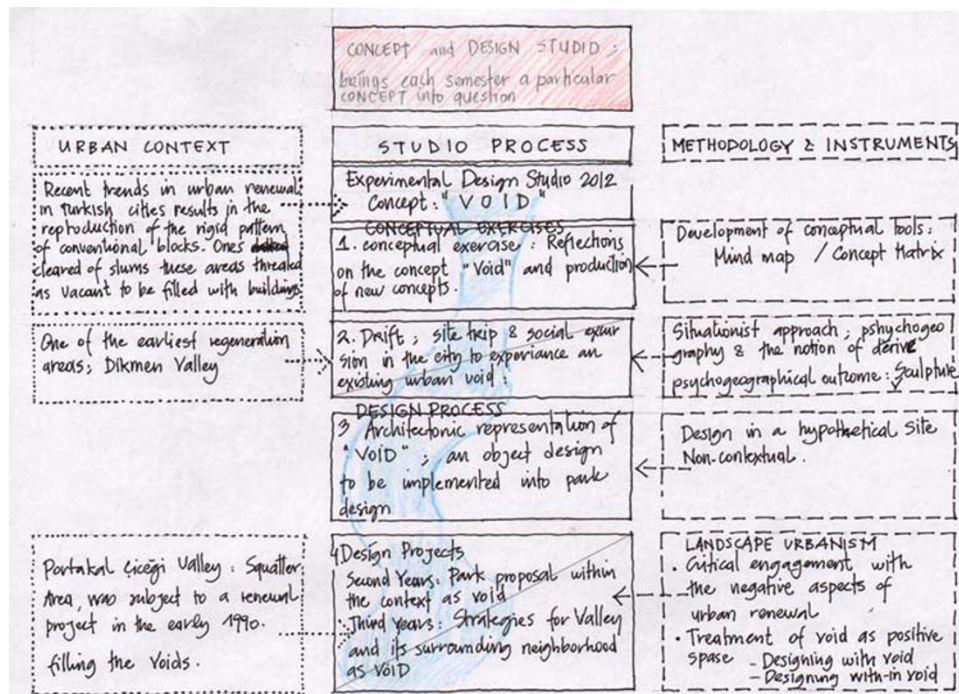 CONCEPT and DESIGN STUDIO :
beings each semester a particular
CONCEPT into question
URBAN CONTEXT
Recent trends in urban renewal
in turkish cities results in the
reproduction of the rigid pattern
of conventional blocks. Ones
cleared of slums these areas threaded
as vacant to be filled with buildings
One of the earliest regeneration
areas; Dikmen Valley
Portakal Çiçeği Valley : Squatter
Area, was subject to a renewal
project in the early 1990.
filling the Voids.
STUDIO PROCESS
Experimental Design Studio 2012
Concept : "VOID"
CONCEPTUAL EXERCISES
1. conceptual exercise : Reflections
on the concept "Void" and production
of new concepts.
2. Drift ; site trip & social exkur
sion in the city to experiance an
existing urban void.
DESIGN PROCESS
3 Architectonic representation of
"VOID" ; an object design
to be implemented into park
design
4. Design Projects
Second Years : Park proposal within
the context as void
Third Years : Strategies for Valley
and its surrounding neighborhood
as VOID
METHODOLOGY & INSTRUMENTS
Development of conceptual tools :
Mind map / Concept Matrix
Situationist approach ; pshychogeo
graphy & the notion of derive
psychogeographical outcome : Sculpture
Design in a hypothetical site
Non-contextual.
LANDSCAPE URBANISM
• Critical engagement with
the negative aspects of
urban renewal
• Treatment of void as positive
spase - Designing with void
- Designing with-in void